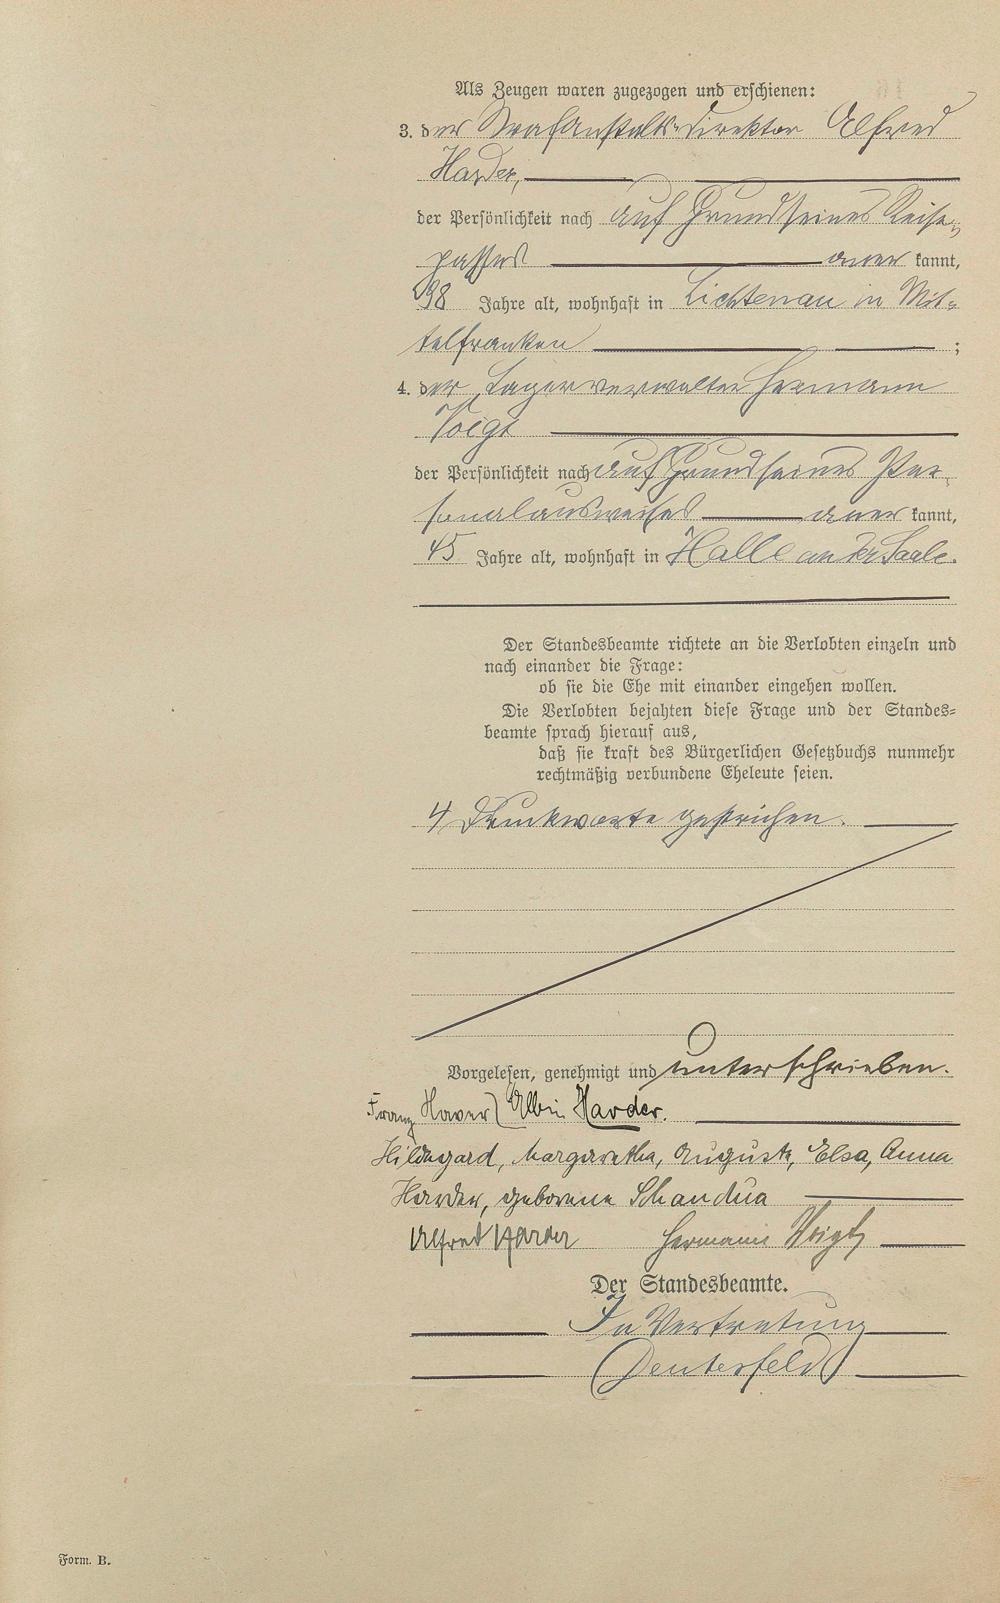 Als Zeugen waren zugezogen und erschienen:
3. der Strafanstalts-Direktor Alfred
Harder,
der Persönlichkeit nach auf Grund seines Reise-
passes anerkannt,
Jahre alt, wohnhaft in Lichtenau in Mit-
telfranken ;
4. der Lagerverwalter Hermann
Voigt
der Persönlichkeit nach auf Grund seines Per-
sonalausweises anerkannt,
45 Jahre alt, wohnhaft in Halle an der Saale.
Der Standesbeamte richtete an die Verlobten einzeln und
nach einander die Frage:
ob sie die Ehe mit einander eingehen wollen.
Die Verlobten bejahten diese Frage und der Standes-
beamte sprach hierauf aus,
daß sie kraft des Bürgerlichen Gesetzbuchs nunmehr
rechtmäßig verbundene Eheleute seien.
4 Druckworte gestrichen.
Vorgelesen, genehmigt und unterschrieben.
Franz Xaver Albin Harder.
Hildegard, Margaretha, Auguste, Elsa, Anna
Harder, geborene Schandua
Alfred Harder Hermann Voigt
Der Standesbeamte.
In Vertretung
Form. B.